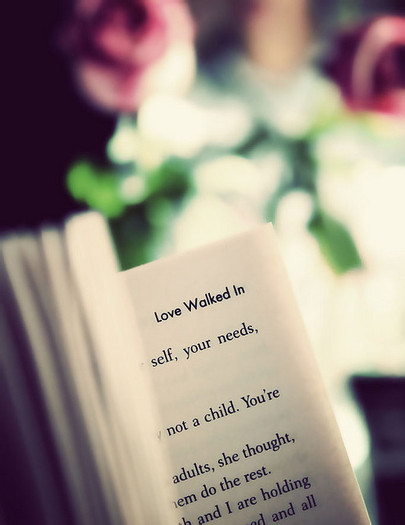 Love Walked In
self, your needs,
not a child. You're
adults, she thought,
em do the rest.
and I are holding
and all